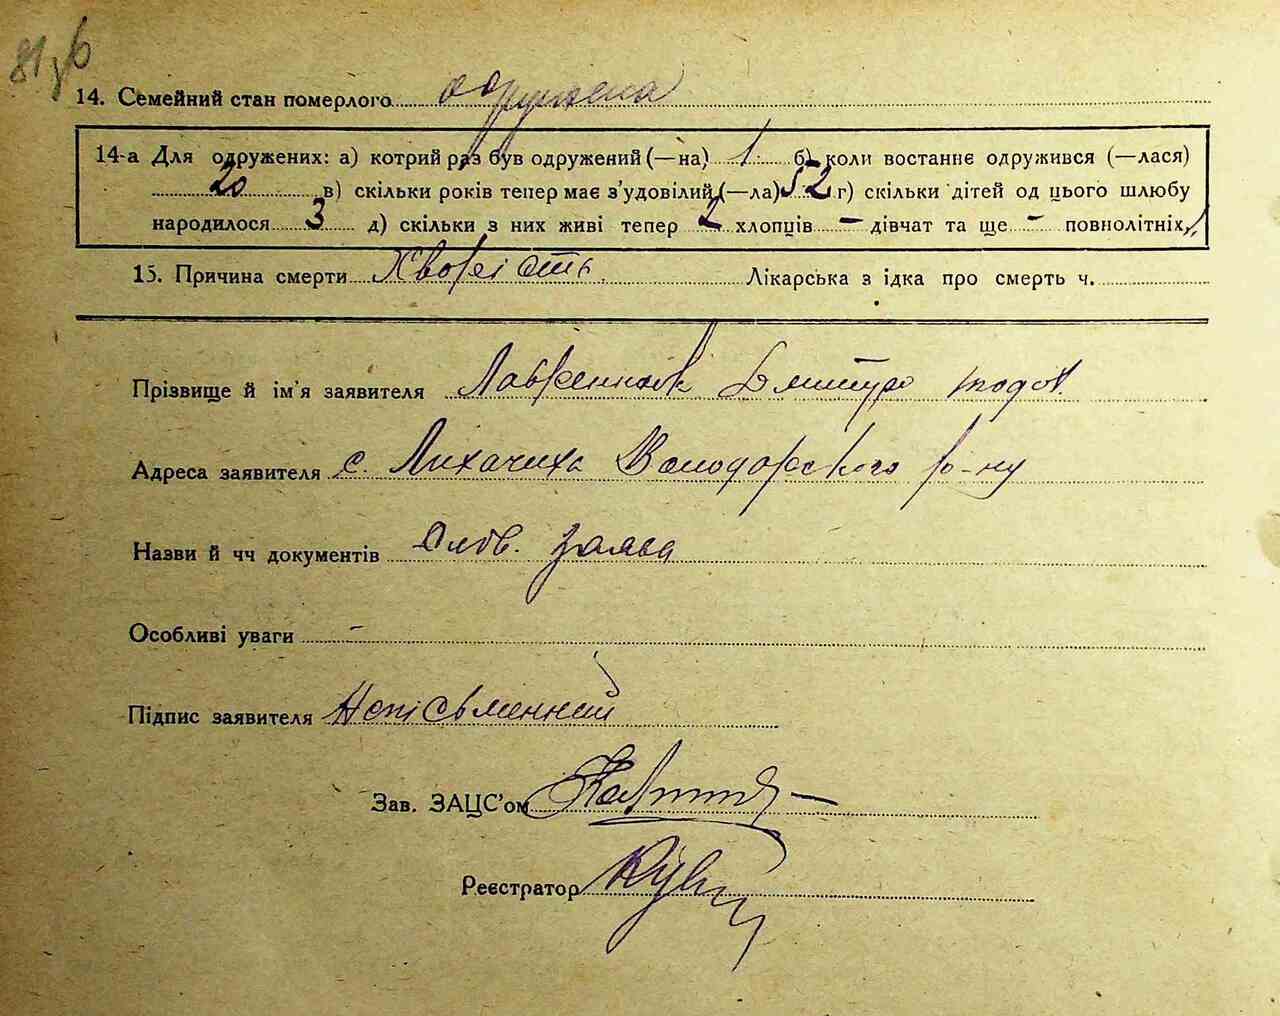 81 зб
14. Семейний стан померлого одружена
14-а Для одружених: а) котрий раз був одружений (—на) 1 б) коли востаннє одружився (—лася)
20 в) скільки років тепер має з'удовілий (—ла) 52 г) скільки дітей од цього шлюбу
народилося 3 д) скільки з них живі тепер 2 хлопців – дівчат та ще – повнолітніх 1
15. Причина смерти Хворість Лікарська з ідка про смерть ч.
Прізвище й ім'я заявителя Лавренник Дмитро
Адреса заявителя с. Лихачиха Володарского р-ну
Назви й чч документів Слов. заява
Особливі уваги –
Підпис заявителя Непісьменний
Зав. ЗАЦС'ом
Реєстратор